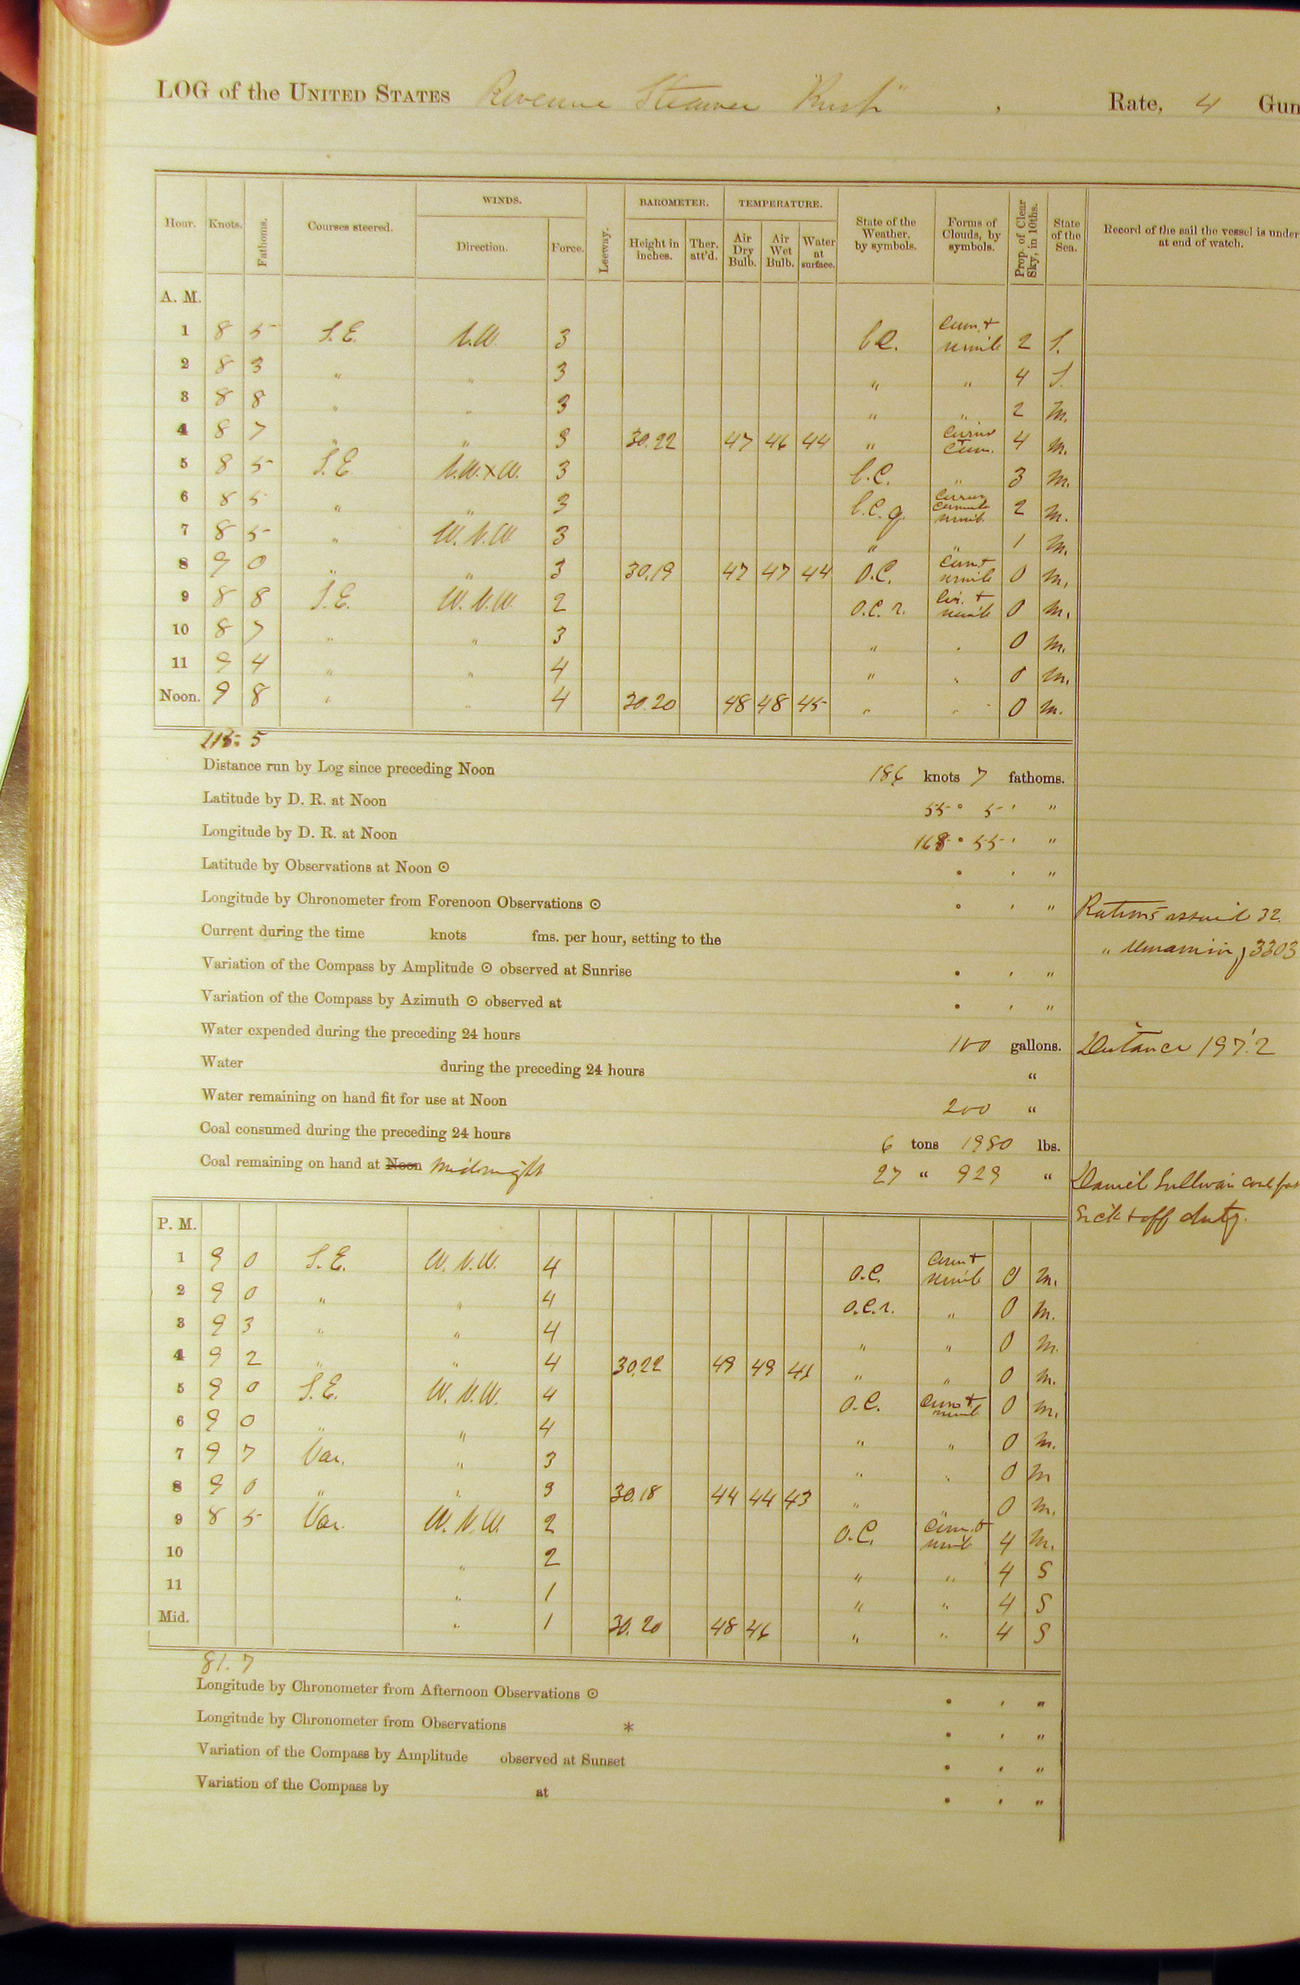 LOG of the UNITED STATES Revenue Steamer "Rush", Rate, 4 Gun
Hour. Knots. Fathoms. Courses steered. WINDS. Direction. Force. Leeway. BAROMETER. Height in inches. Ther. att'd. TEMPERATURE. Air Dry Bulb. Air Wet Bulb. Water at surface. State of the Weather, by symbols. Forms of Clouds, by symbols. Prop. of Clear Sky, in 10ths. State of the Sea. Record of the sail the vessel is under at end of watch.
A. M.
1 8 5 S.E. N.W. 3 b.c. Cum. + nimb 2 S.
2 8 3 " " 3 " " 4 S.
3 8 8 " " 3 " " 2 M.
4 8 7 " " 3 30.22 47 46 44 " Cirro Cum. 4 M.
5 8 5 S.E. N.W. x W. 3 b.c. " 3 M.
6 8 5 " " 3 b.c.q. 2 M.
7 8 5 " W.N.W 3 " " 1 M.
8 9 0 " " 3 30.19 47 47 44 O.C. Cum + nimb 0 M.
9 8 8 S.E. W.N.W 2 O.C.r. + nimb 0 M.
10 8 7 " " 3 " " 0 M.
11 9 4 " " 4 " " 0 M.
Noon. 9 8 " " 4 30.20 48 48 45 " " 0 M.
5
Distance run by Log since preceding Noon 186 knots 7 fathoms.
Latitude by D. R. at Noon 55° 5' "
Longitude by D. R. at Noon 168° 55' "
Latitude by Observations at Noon ⊙ ° ' "
Longitude by Chronometer from Forenoon Observations ⊙ ° ' "
Rations issued 32.
Current during the time knots fms. per hour, setting to the
" remaining 3303
Variation of the Compass by Amplitude ⊙ observed at Sunrise ° ' "
Variation of the Compass by Azimuth ⊙ observed at ° ' "
Water expended during the preceding 24 hours 100 gallons.
Distance 197.'2
Water during the preceding 24 hours "
Water remaining on hand fit for use at Noon 200 "
Coal consumed during the preceding 24 hours 6 tons 1980 lbs.
Coal remaining on hand at Noon Midnight 27 " 929 "
Daniel Sullivan
Sick & off duty.
P. M.
1 9 0 S.E. W.N.W. 4 O.C. Cum + nimb 0 M.
2 9 0 " " 4 O.C.r. " 0 M.
3 9 3 " " 4 " " 0 M.
4 9 2 " " 4 30.22 49 49 44 " " 0 M.
5 9 0 S.E. W.N.W. 4 O.C. Cum + nimb 0 M.
6 9 0 " " 4 " " 0 M.
7 9 7 Var. " 3 " " 0 M
8 9 0 " " 3 30.18 44 44 43 " " 0 M.
9 8 5 Var. W.N.W. 2 O.C. Cum. & nimb 4 M.
10 " 2 " " 4 S
11 " 1 " " 4 S
Mid. " 1 30.20 48 46 " " 4 S
81. 7
Longitude by Chronometer from Afternoon Observations ⊙ ° ' "
Longitude by Chronometer from Observations * ° ' "
Variation of the Compass by Amplitude observed at Sunset ° ' "
Variation of the Compass by at ° ' "